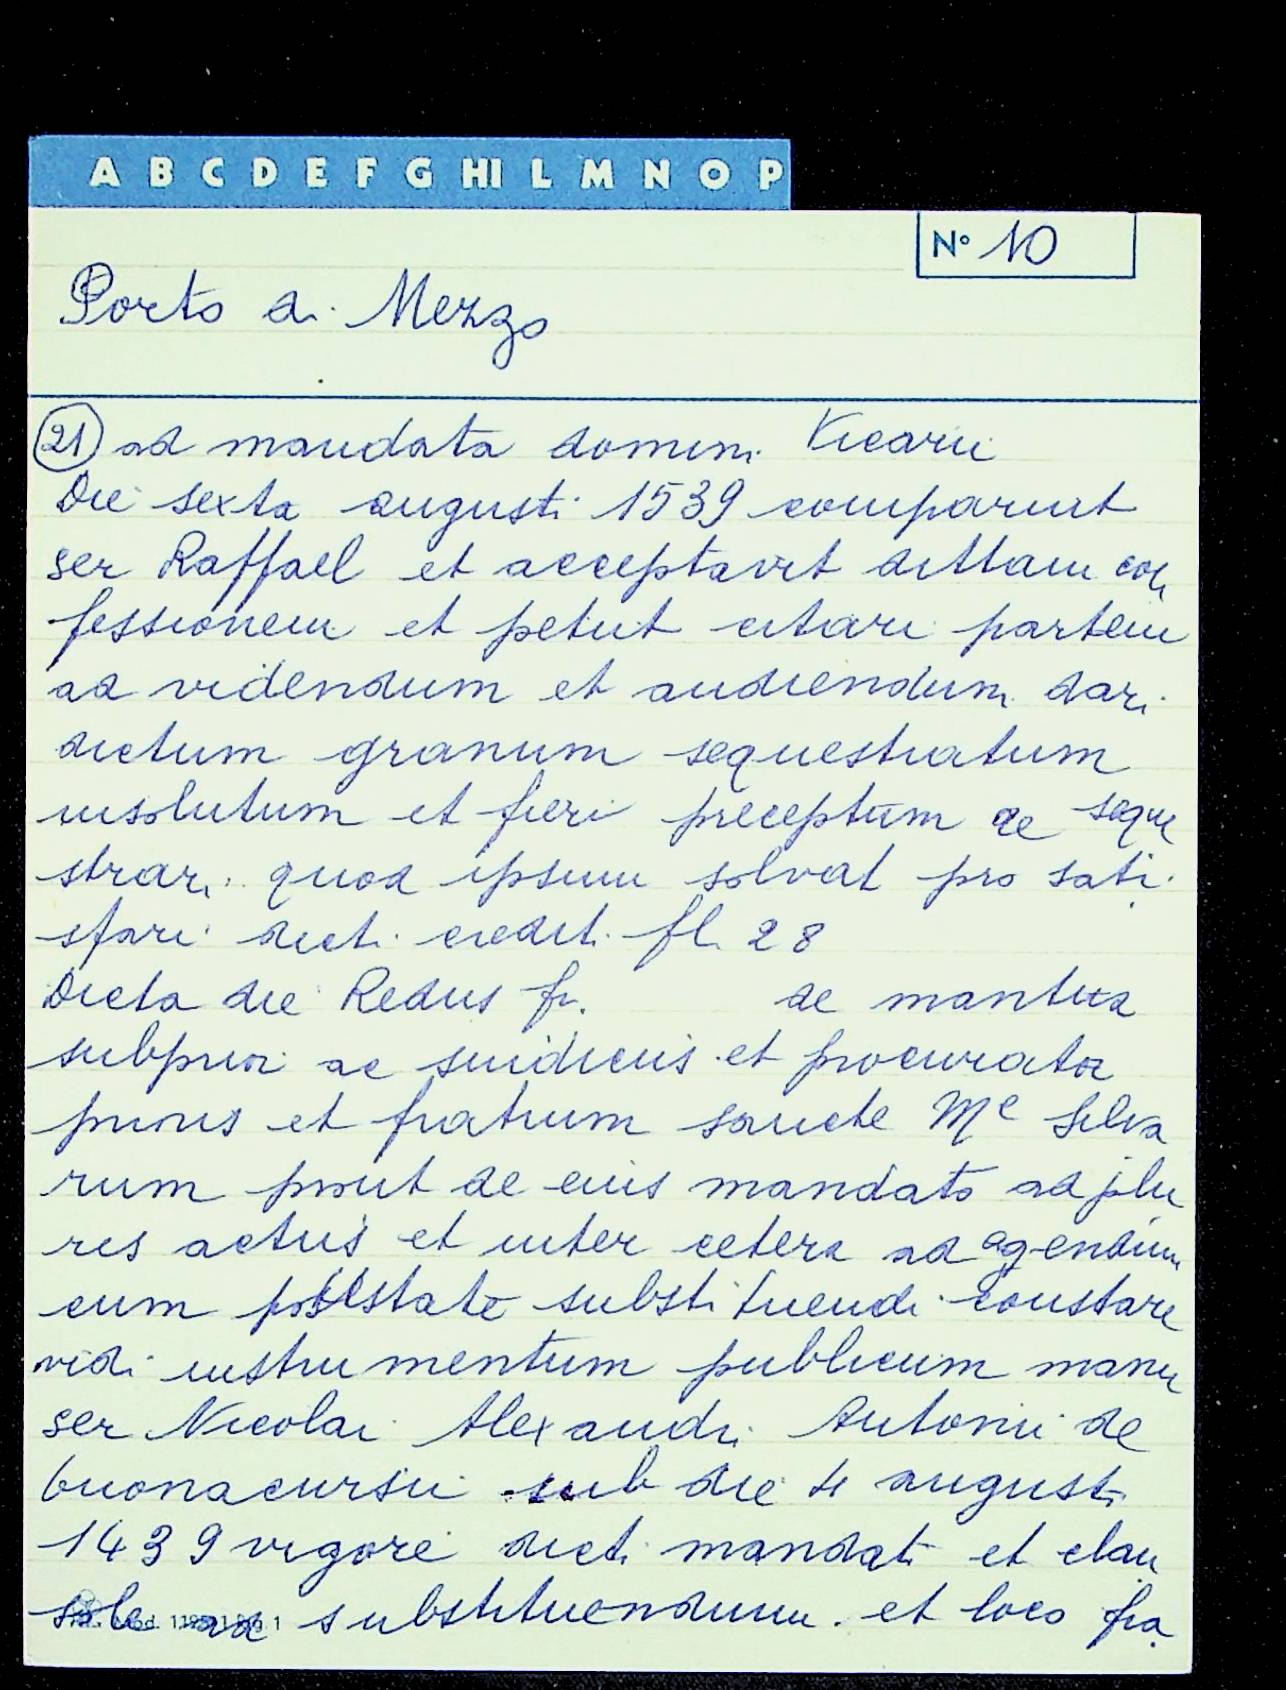 A B C D E F G HI L M N O P
Nº 10
Porto di Mezzo
21 ad mandata domini Vicarii
Die sexta augusti 1539 comparuit
ser Raffael et acceptavit dittam con
fessionem et petiit citari partem
ad videndum et audiendum dari
dictum granum sequestratum
insolutum et fieri preceptum de seque
strari quod ipsum solvat pro sati
sfari dicti crediti fl. 28
Dicta die Redus fr. de mantua
subprior ac sindicus et procurator
prioris et fratrum sancte Me Silva
rum prout de eius mandato ad plu
res actus et inter cetera ad agendum
cum potestate substituendi constare
vidi instrumentum publicum manu
ser Nicolai Alexandri Antonii de
buonacursii sub die 4 augusti
1439 vigore dicti mandati et clau
sole ad substituendum et loco fra